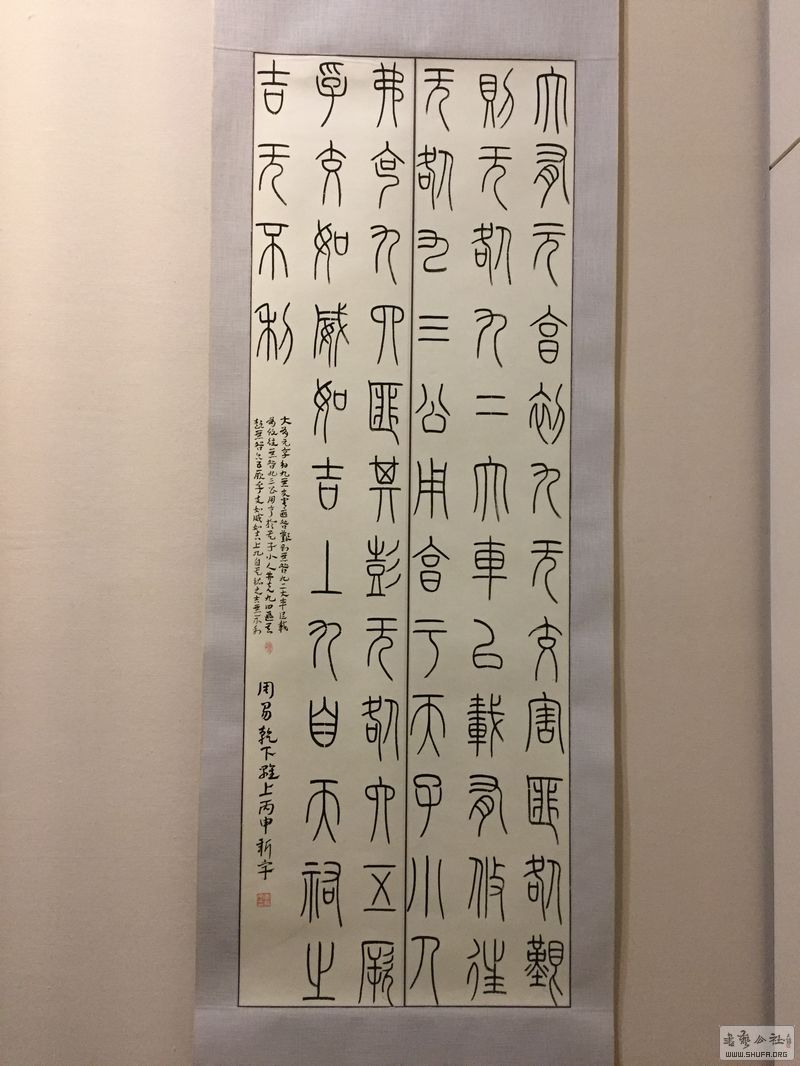 大有元亨初九无交害匪咎艱
則无咎九二大車以載有攸往
无咎九三公用亨于天子小人
弗克九四匪其彭无咎六五厥
孚交如威如吉上九自天祐之
吉无不利
大有元亨初九無交害匪咎艱則無咎九二大車以載
有攸往無咎九三公用亨於天子小人弗克九四匪其
彭無咎六五厥孚交如威如吉上九自天祐之吉無不利
周易乾下離上丙申新宇
書藝公社
WWW.SHUFA.ORG